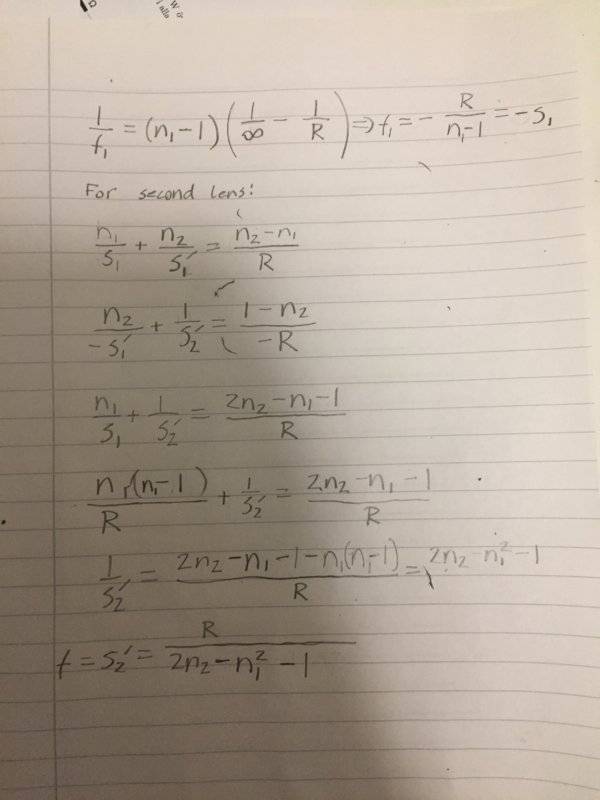 1/f₁ = (n₁-1)(1/∞ - 1/R) ⇒ f₁ = - R/(n₁-1) = -s₁
For second lens:
n₁/s₁ + n₂/s₁′ = (n₂-n₁)/R
n₂/-s₁′ + 1/s₂′ = (1-n₂)/-R
n₁/s₁ + 1/s₂′ = (2n₂-n₁-1)/R
n₁(n₁-1)/R + 1/s₂′ = (2n₂-n₁-1)/R
1/s₂′ = (2n₂-n₁-1-n₁(n₁-1))/R = 2n₂-n₁²-1
f = s₂′ = R/(2n₂-n₁²-1)